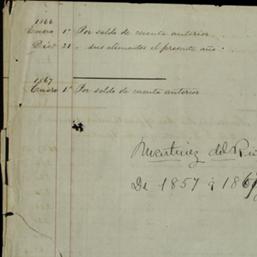 1866
Enero 1º Por saldo de cuenta anterior
Dicr 31 " sus alimentos el presente año
1867
Enero 1º Por saldo de cuenta anterior
Martinez del Rio
De 1857 á 186